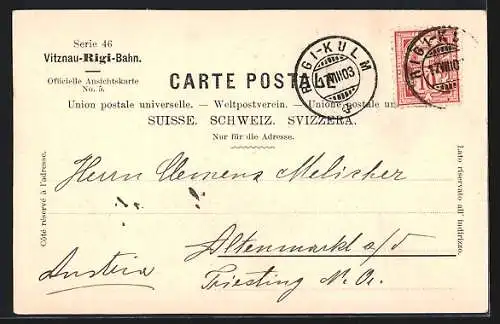 Serie 46
Vitznau-Rigi-Bahn.
Officielle Ansichtskarte
No. 5.
CARTE POSTALE
Union postale universelle. — Weltpostverein. — Unione postale un
SUISSE. SCHWEIZ. SVIZZERA.
Nur für die Adresse.
RIGI-KULM
17.VIII.03
RIGI-KUL
VIII.0
10
Côté réservé à l'adresse.
Lato riservato all' indirizzo.
Herrn Clemens Melicher
Altenmarkt a/d
Austria
Triesting N. Oe.